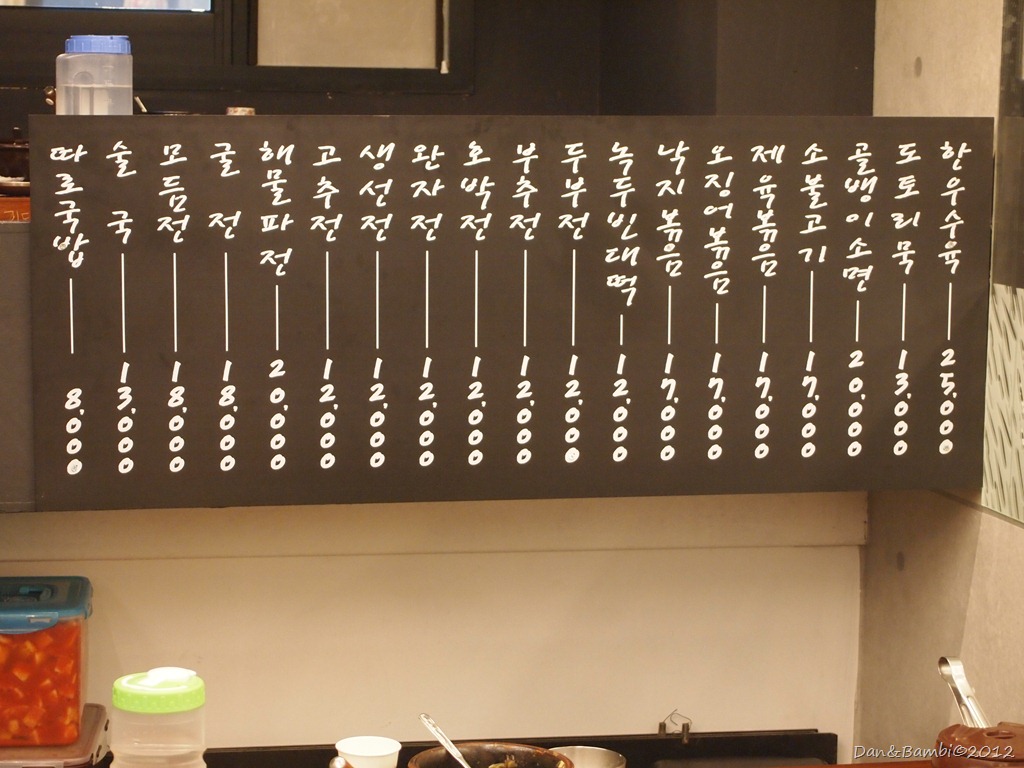 따로국밥 8,000
술국 13,000
모듬전 18,000
굴전 18,000
해물파전 20,000
고추전 12,000
생선전 12,000
완자전 12,000
호박전 12,000
부추전 12,000
두부전 12,000
녹두빈대떡 12,000
낙지볶음 17,000
오징어볶음 17,000
제육볶음 17,000
소불고기 17,000
골뱅이소면 20,000
도토리묵 13,000
한우수육 25,000
Dan&Bambi©2012